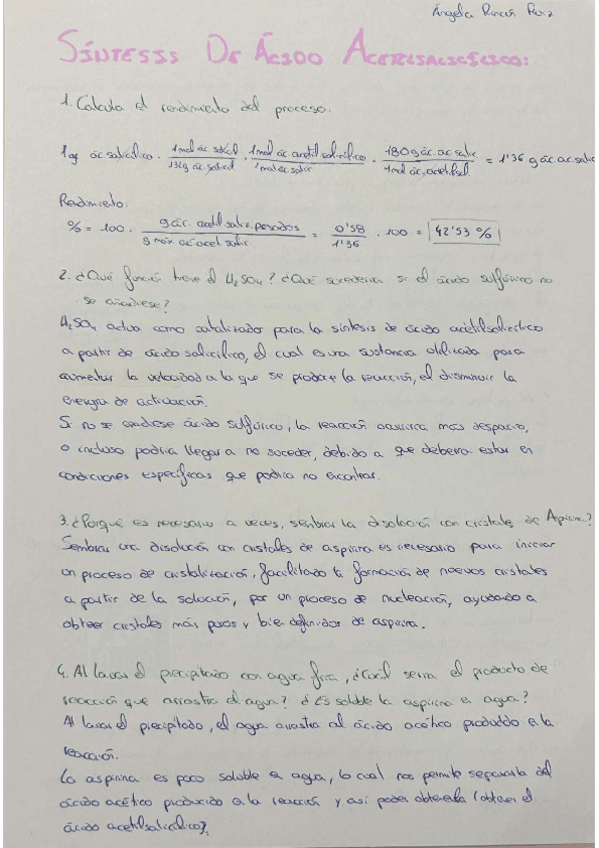 Ángela Rincón Ruiz
SÍNTESIS DE ÁCIDO ACETILSALICÍLICO:
1. Calcula el rendimiento del proceso.
1g ác salicílico · 1mol ác salicil / 138g ác. salicil · 1mol ác. acetil salicílico / 1mol ác salir · 180g ác. ac. salic / 1mol ác. acetilsal = 1'36 g ác. ac. salic
Rendimiento:
% = 100 · g ác. acetil salic. pesados / g máx ác acet salic = 0'58 / 1'36 · 100 = 42'53 %
2. ¿Qué función tiene el H₂SO₄? ¿Qué sucedería si el ácido sulfúrico no
se añadiese?
H₂SO₄ actua como catalizador para la síntesis de ácido acetilsalicílico
a partir de ácido salicílico, el cual es una sustancia utilizada para
aumentar la velocidad a la que se produce la reacción, el disminuir la
energía de activación.
Si no se añadiese ácido sulfúrico, la reacción ocurriría más despacio,
o incluso podría llegar a no suceder, debido a que debería estar en
condiciones específicas que podría no encontrar.
3. ¿Porqué es necesario a veces, sembrar la disolución con cristales de Aspirina?
Sembrar una disolución con cristales de aspirina es necesario para iniciar
un proceso de cristalización, facilitado la formación de nuevos cristales
a partir de la solución, por un proceso de nucleación, ayudando a
obtener cristales más puros y bien definidos de aspirina.
4. Al lavar el precipitado con agua fría, ¿Cuál sería el producto de
reacción que arrastra el agua? ¿Es soluble la aspirina en agua?
Al lavar el precipitado, el agua arrastra al ácido acético producido en la
reacción.
La aspirina es poco soluble en agua, lo cual nos permite separarla del
ácido acético producido en la reacción y así poder obtenerla (obtener el
ácido acetilsalicílico).